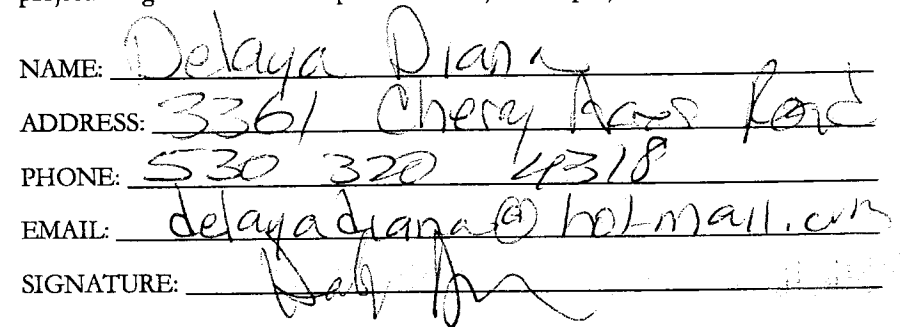 NAME: Delaya Diana
ADDRESS: 3361 Chery Acres Road
PHONE: 530 320 4318
EMAIL: delayadiana@hotmail.com
SIGNATURE: